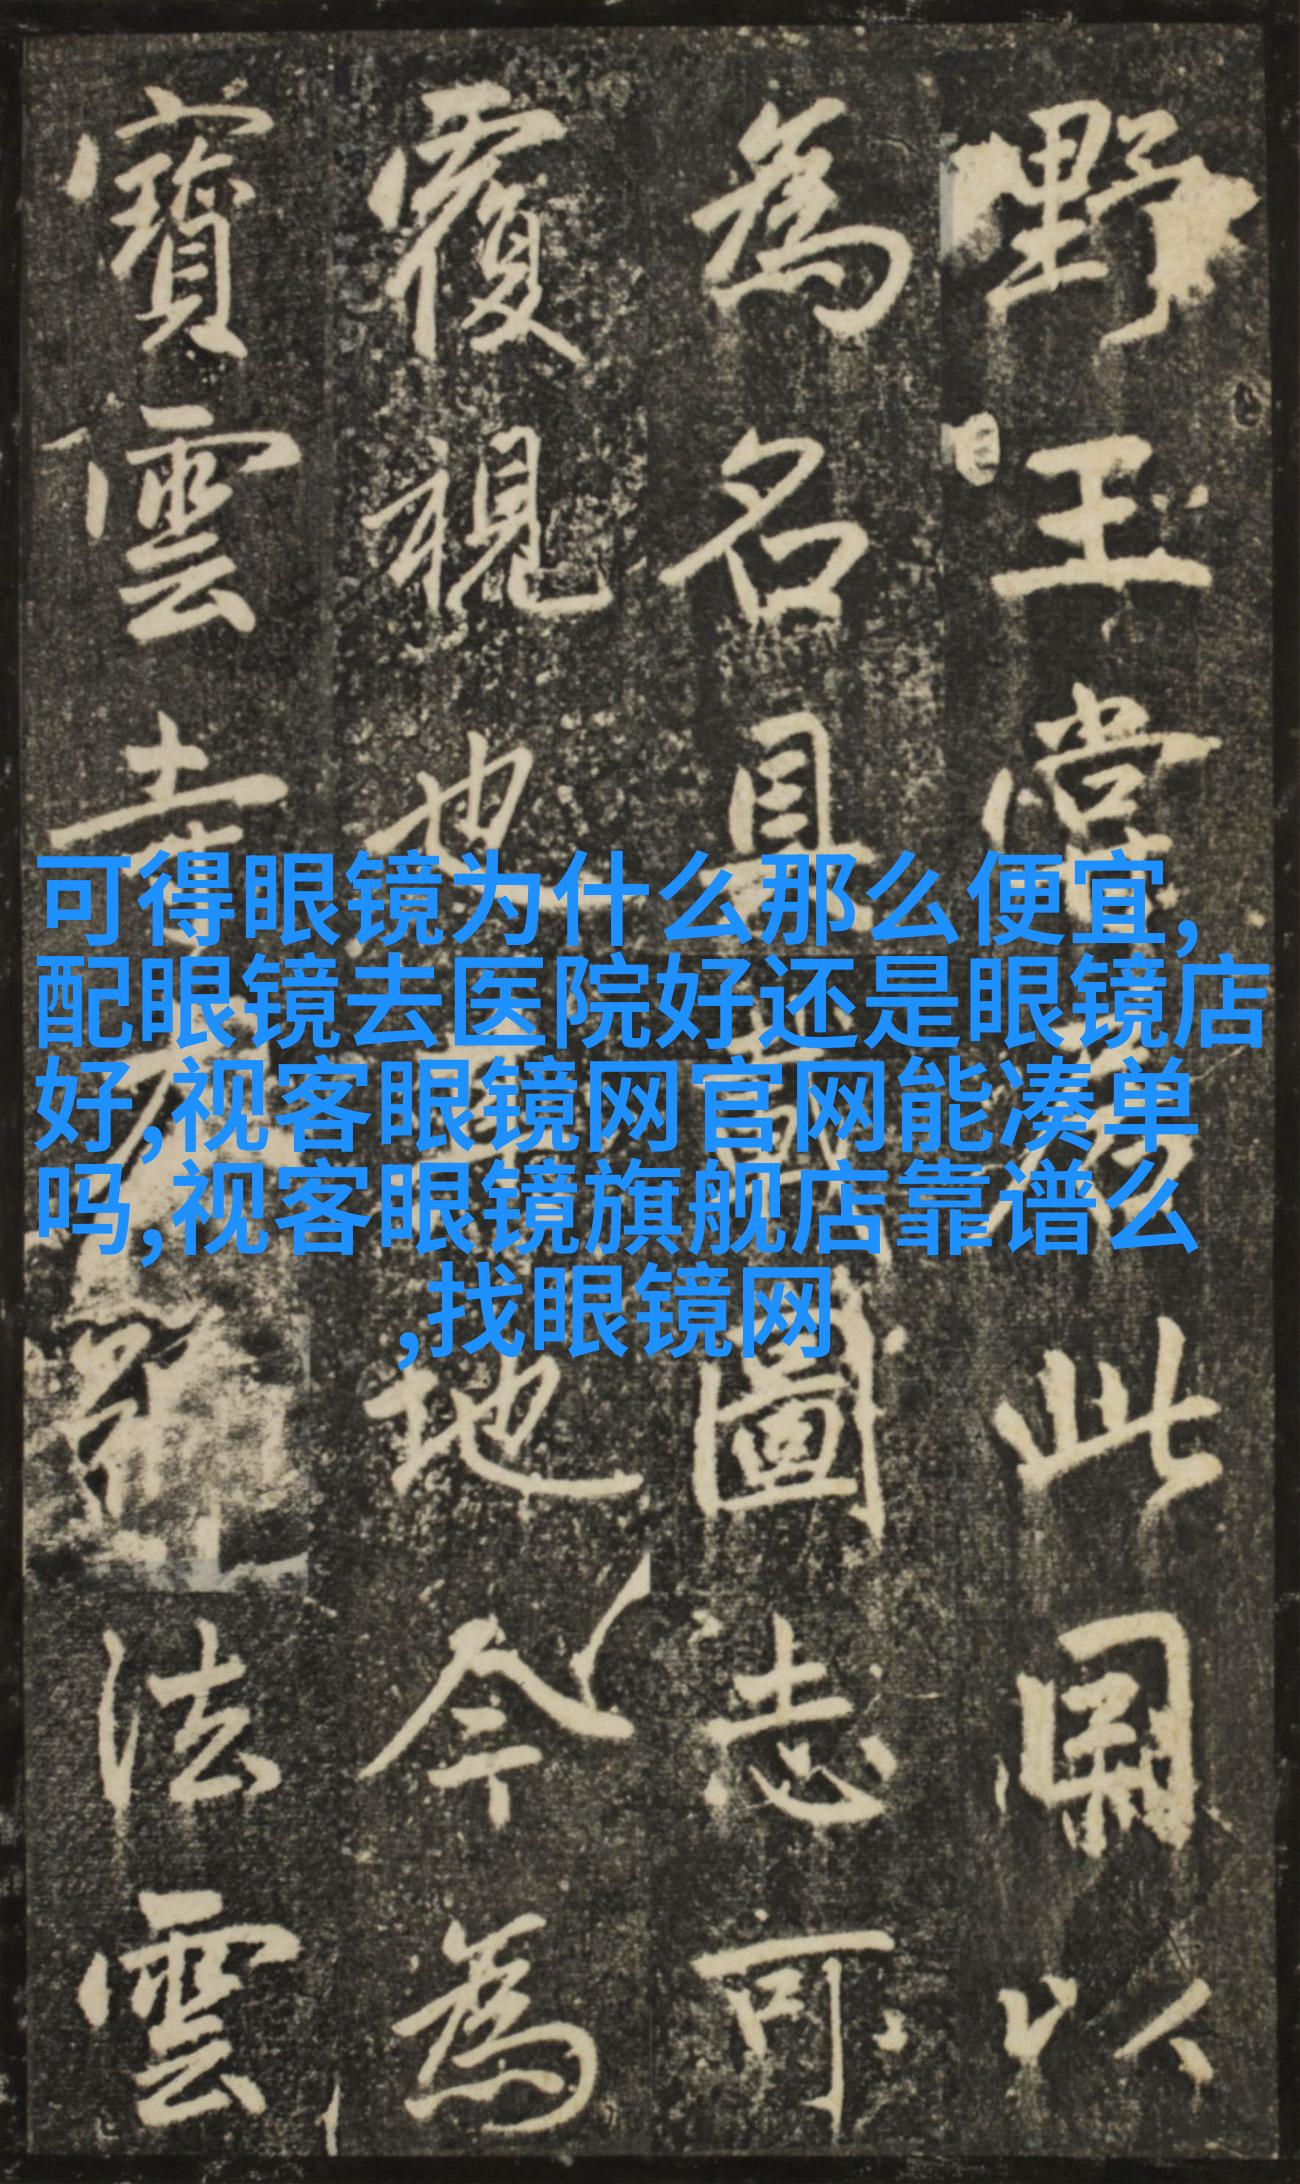 野王此以
為名具圖志可
覆視也地今為
寶雲法雲
可得眼镜为什么那么便宜,
配眼镜去医院好还是眼镜店
好,视客眼镜网官网能凑单
吗,视客眼镜旗舰店靠谱么
,找眼镜网